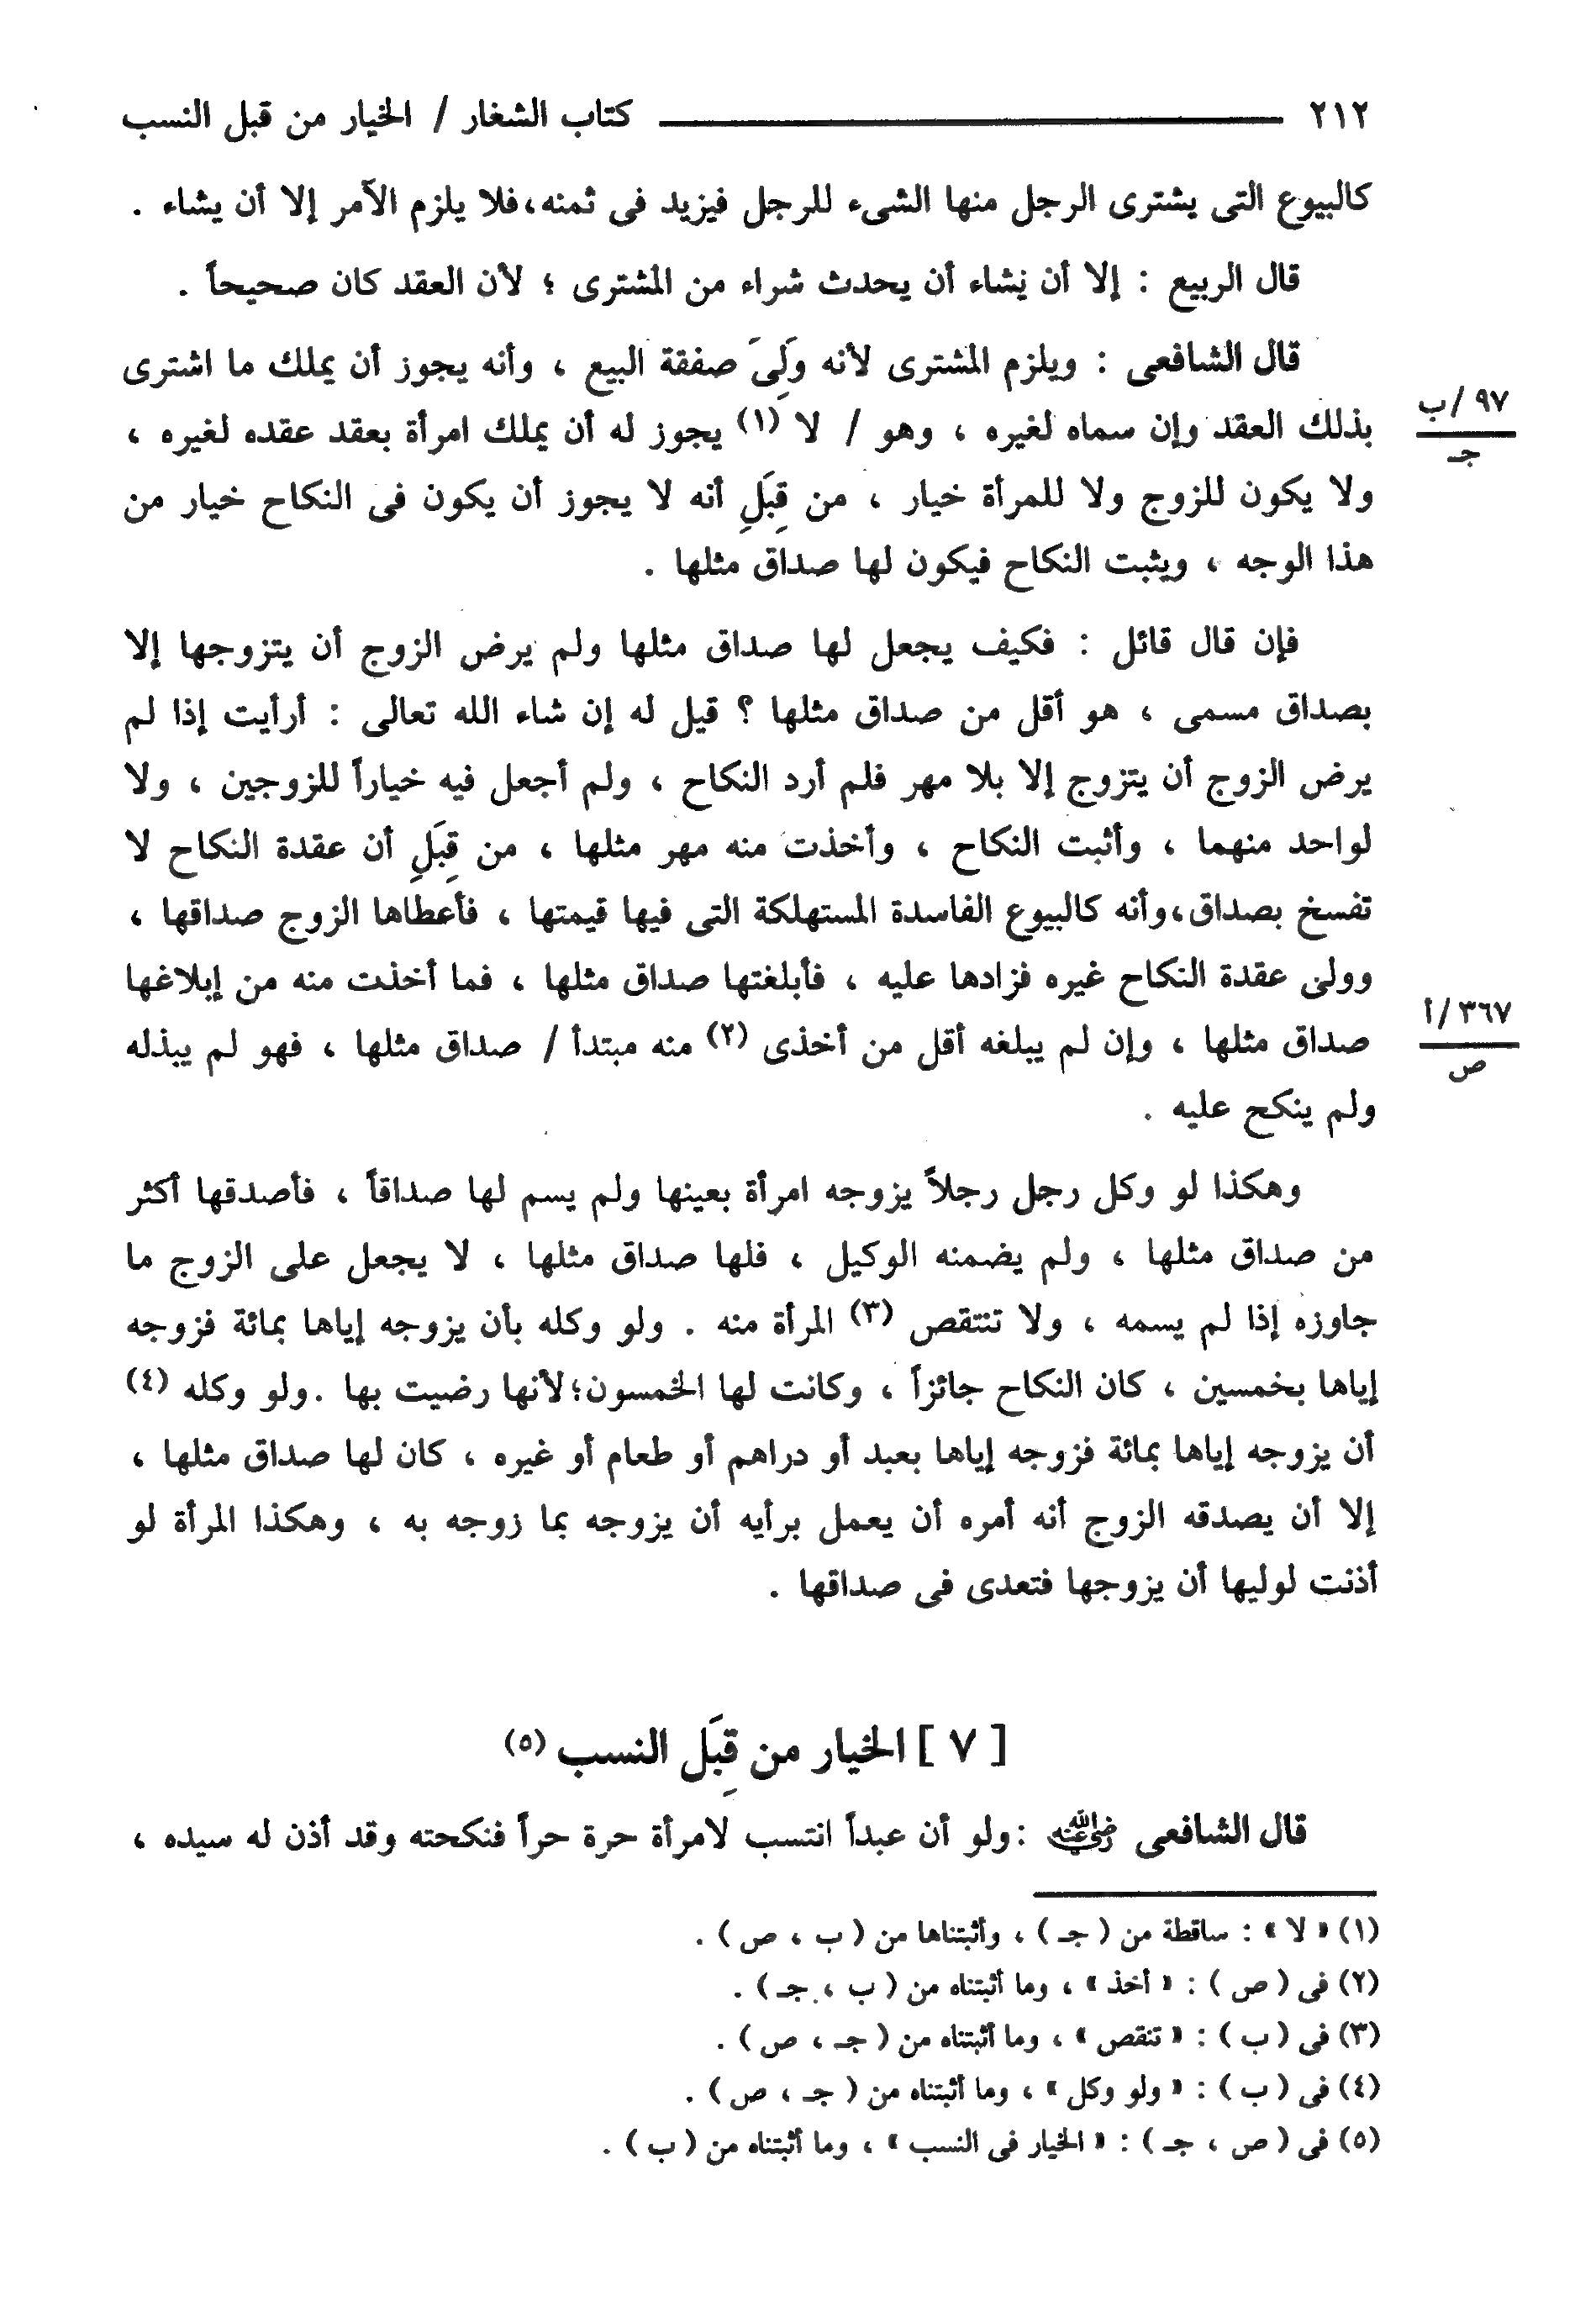 ٢١٢ كتاب الشغار / الخيار من قبل النسب
كالبيوع التى يشترى الرجل منها الشىء للرجل فيزيد فى ثمنه، فلا يلزم الآمر إلا أن يشاء .
قال الربيع : إلا أن يشاء أن يحدث شراء من المشترى ؛ لأن العقد كان صحيحاً .
قال الشافعى : ويلزم المشترى لأنه وَلِىَ صفقة البيع ، وأنه يجوز أن يملك ما اشترى
بذلك العقد وإن سماه لغيره ، وهو / لا (١) يجوز له أن يملك امرأة بعقد عقده لغيره ،
٩٧ /ب
جـ
ولا يكون للزوج ولا للمرأة خيار ، من قِبَلِ أنه لا يجوز أن يكون فى النكاح خيار من
هذا الوجه ، ويثبت النكاح فيكون لها صداق مثلها .
فإن قال قائل : فكيف يجعل لها صداق مثلها ولم يرض الزوج أن يتزوجها إلا
بصداق مسمى ، هو أقل من صداق مثلها ؟ قيل له إن شاء الله تعالى : أرأيت إذا لم
يرض الزوج أن يتزوج إلا بلا مهر فلم أرد النكاح ، ولم أجعل فيه خياراً للزوجين ، ولا
لواحد منهما ، وأثبت النكاح ، وأخذت منه مهر مثلها ، من قِبَلِ أن عقدة النكاح لا
تفسخ بصداق، وأنه كالبيوع الفاسدة المستهلكة التى فيها قيمتها ، فأعطاها الزوج صداقها ،
وولى عقدة النكاح غيره فزادها عليه ، فأبلغتها صداق مثلها ، فما أخذت منه من إبلاغها
صداق مثلها ، وإن لم يبلغه أقل من أخذى (٢) منه مبتدأ / صداق مثلها ، فهو لم يبذله
٣٦٧ /أ
ص
ولم ينكح عليه .
وهكذا لو وكل رجل رجلاً يزوجه امرأة بعينها ولم يسم لها صداقاً ، فأصدقها أكثر
من صداق مثلها ، ولم يضمنه الوكيل ، فلها صداق مثلها ، لا يجعل على الزوج ما
جاوزه إذا لم يسمه ، ولا تنتقص (٣) المرأة منه . ولو وكله بأن يزوجه إياها بمائة فزوجه
إياها بخمسين ، كان النكاح جائزاً ، وكانت لها الخمسون؛ لأنها رضيت بها . ولو وكله (٤)
أن يزوجه إياها بمائة فزوجه إياها بعبد أو دراهم أو طعام أو غيره ، كان لها صداق مثلها ،
إلا أن يصدقه الزوج أنه أمره أن يعمل برأيه أن يزوجه بما زوجه به ، وهكذا المرأة لو
أذنت لوليها أن يزوجها فتعدى فى صداقها .
[ ٧ ] الخيار من قِبَلِ النسب (٥)
قال الشافعى رضي الله عنه : ولو أن عبداً انتسب لامرأة حرة حراً فنكحته وقد أذن له سيده ،
(١) « لا » : ساقطة من ( جـ ) ، وأثبتناها من ( ب ، ص ) .
(٢) فى ( ص ) : « أخذ » ، وما أثبتناه من ( ب ، جـ ) .
(٣) فى ( ب ) : « تنقص » ، وما أثبتناه من ( جـ ، ص ) .
(٤) فى ( ب ) : « ولو وكل » ، وما أثبتناه من ( جـ ، ص ) .
(٥) فى ( ص ، جـ ) : « الخيار فى النسب » ، وما أثبتناه من ( ب ) .